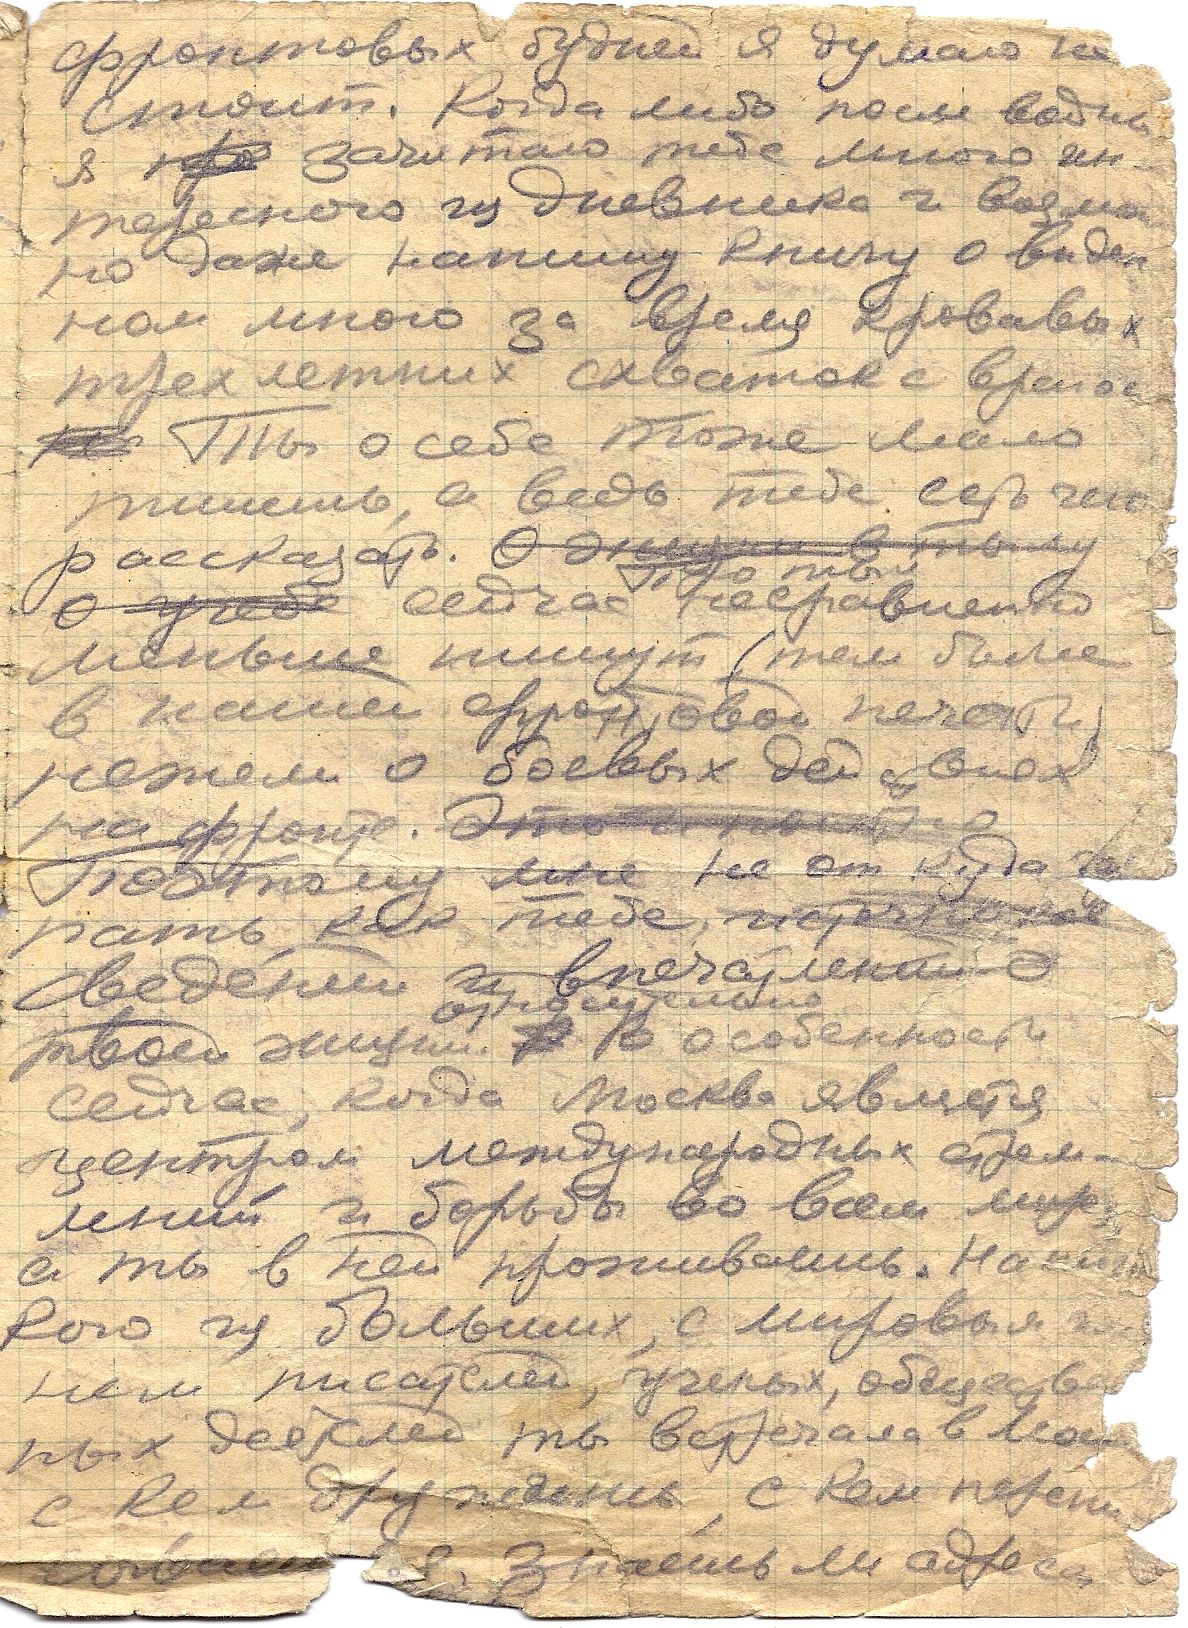 фронтовых будней я думаю не
стоит. Когда либо после войны
я зачитаю тебе много ин-
тересного из дневника и возмож
но даже напишу книгу о виден
ном много за время кровавых
трех летних схваток с врагом
Ты о себе тоже мало
пишешь, а ведь тебе есть чего
рассказать. О жизни в тылу
о учебе сейчас про тыл несравненно
меньше пишут (тем более
в нашей фронтовой печати)
нежели о боевых действиях
на фронте. Это и понятно
Поэтому мне не от куда че
рпать, как тебе,
сведений и впечатлений о
твоей жизни. относительно В особенности
сейчас, когда Москва является
центром международных стрем-
лений и борьбы во всем мире,
а ты в ней проживаешь.
Кого из больших, с мировым име
нем писателей, ученых, обществен
ных деятелей ты встречала в Москве
с кем дружишь, с кем перепи
сываешься, знаешь ли адреса